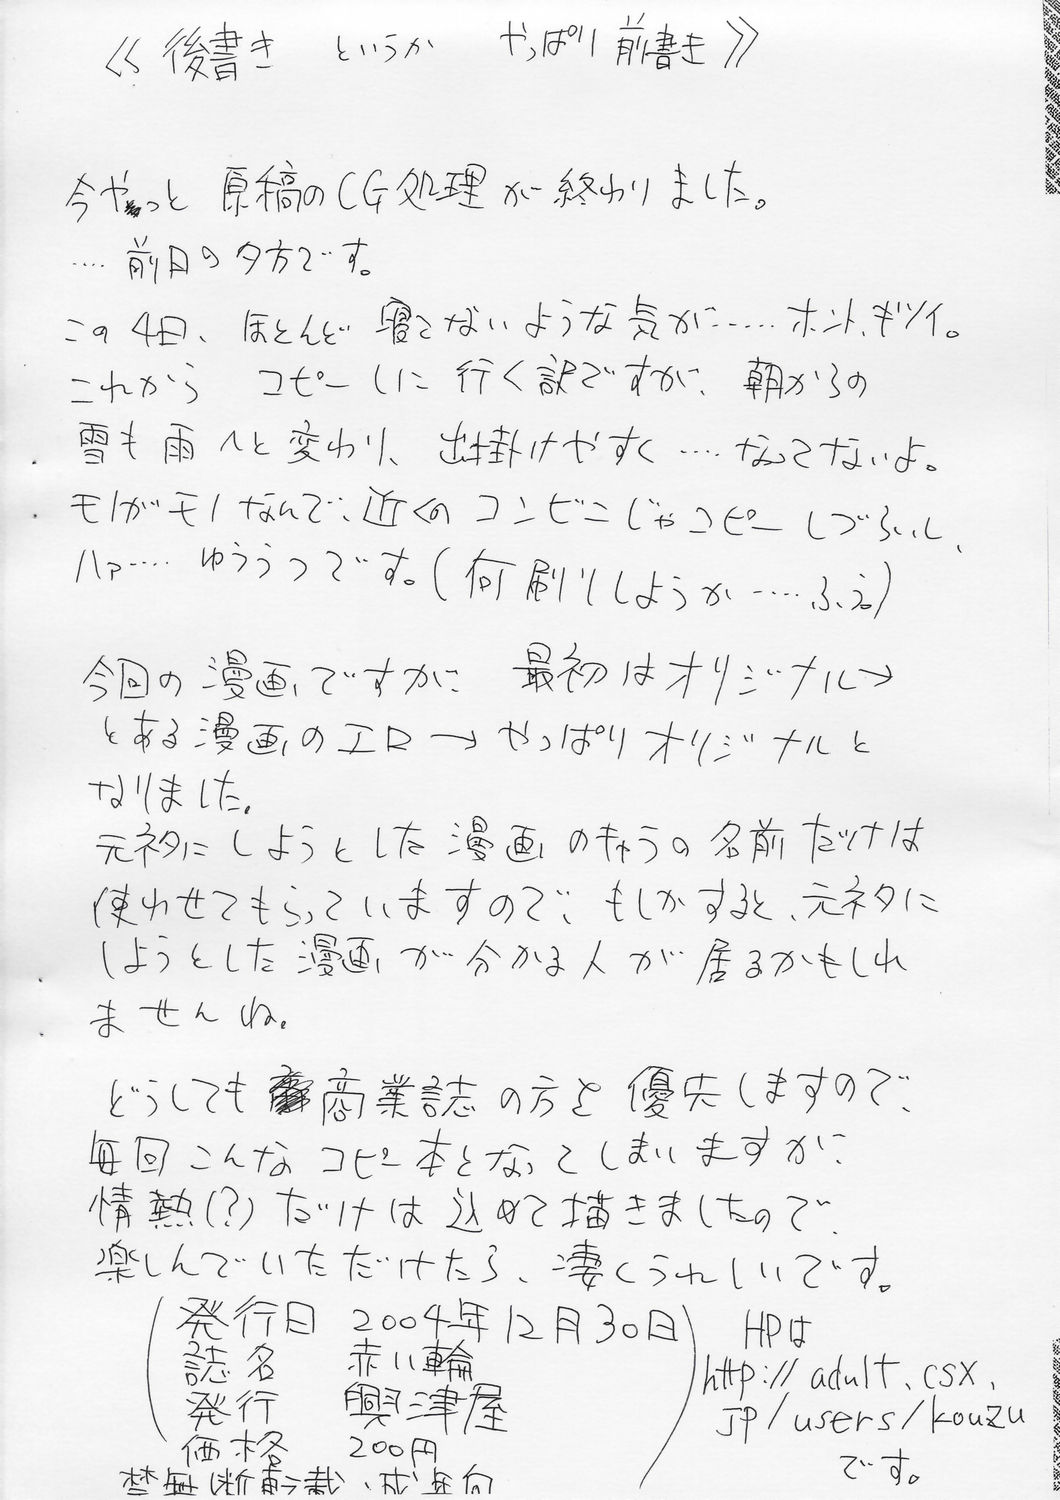 ≪後書き というか やっぱり前書き≫
今やっと 原稿のCG処理が終わりました。
‥‥前日の夕方です。
この4日、ほとんど寝てないような気が‥‥‥ホント、キツイ。
これから コピーしに行く訳ですが、朝からの
雪も雨へと変わり、出掛けやすく‥‥なってないよ。
モノがモノなんで、近くのコンビニじゃコピーしづらいし、
ハァ‥‥ゆううつです。(何刷りしようか‥‥‥ふえ。)
今回の漫画ですが、最初はオリジナル→
とある漫画のエロ→やっぱりオリジナルと
なりました。
元ネタにしようとした漫画のキャラの名前だけは
使わせてもらっていますので、もしかすると、元ネタに
しようとした漫画が分かる人が居るかもしれ
ませんね。
どうしても商業誌の方を優先しますので、
毎回こんなコピー本となってしまいますが、
情熱(?)だけは込めて描きましたので、
楽しんでいただけたら、凄くうれしいです。
発行日 2004年12月30日
誌名 赤い輪
発行 興津屋
価格 200円
禁無断転載、成年向
HPは
http://adult.csx.
jp/users/kouzu
です。